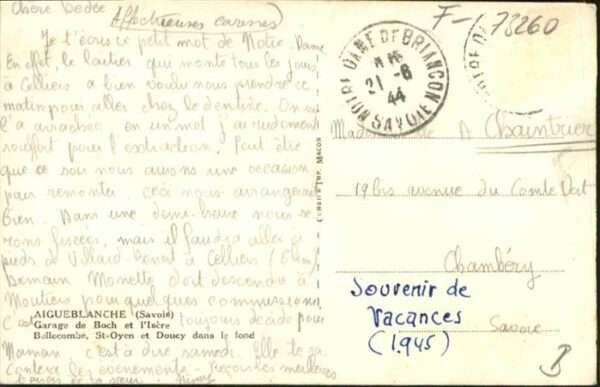 Chère Dédée
Affectueuses caresses
Je t'écris ce petit mot de Notre-Dame
En effet, le laitier qui monte tous les jours
à Celliers a bien voulu nous prendre ce
matin pour aller chez le dentiste. On
l'a arrachée en un mot j'ai rudement
souffert pour l'extraction. Peut être
que ce soir nous aurons une occasion
pour remonter, ceci nous arrangerait
bien. Dans une demi-heure nous se
rons fixées, mais il faudra aller à
pieds de Villard Benoit à Celliers
Demain Monette doit descendre à
Moutiers pour quelques commissions
C'est toujours décidé pour
Maman c'est à dire samedi. Elle te ra
contera les évènements. Reçois les meilleurs
baisers de ta sœur
AIGUEBLANCHE (Savoie)
Garage de Boch et l'Isère
Bellecombe, St-Oyen et Doucy dans le fond
COMBIER IMP. MACON
F-1, 73260
NOTRE DAME DE BRIANÇON
21-8
44
SAVOIE
Mademoiselle A Chaintrier
19 bis avenue du Comte Vert
Chambéry
Savoie
Souvenir de
Vacances
(1945)
B